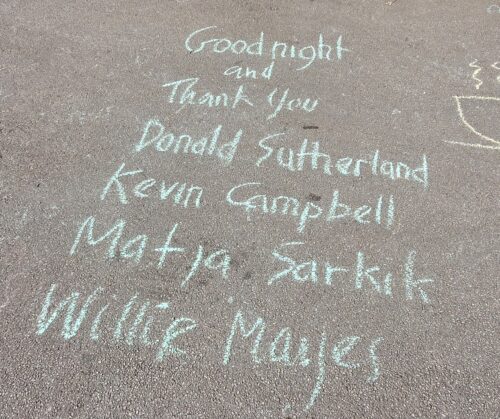 Good night
and
Thank You
Donald Sutherland
Kevin Campbell
Matja Sarkik
Willie Mayes